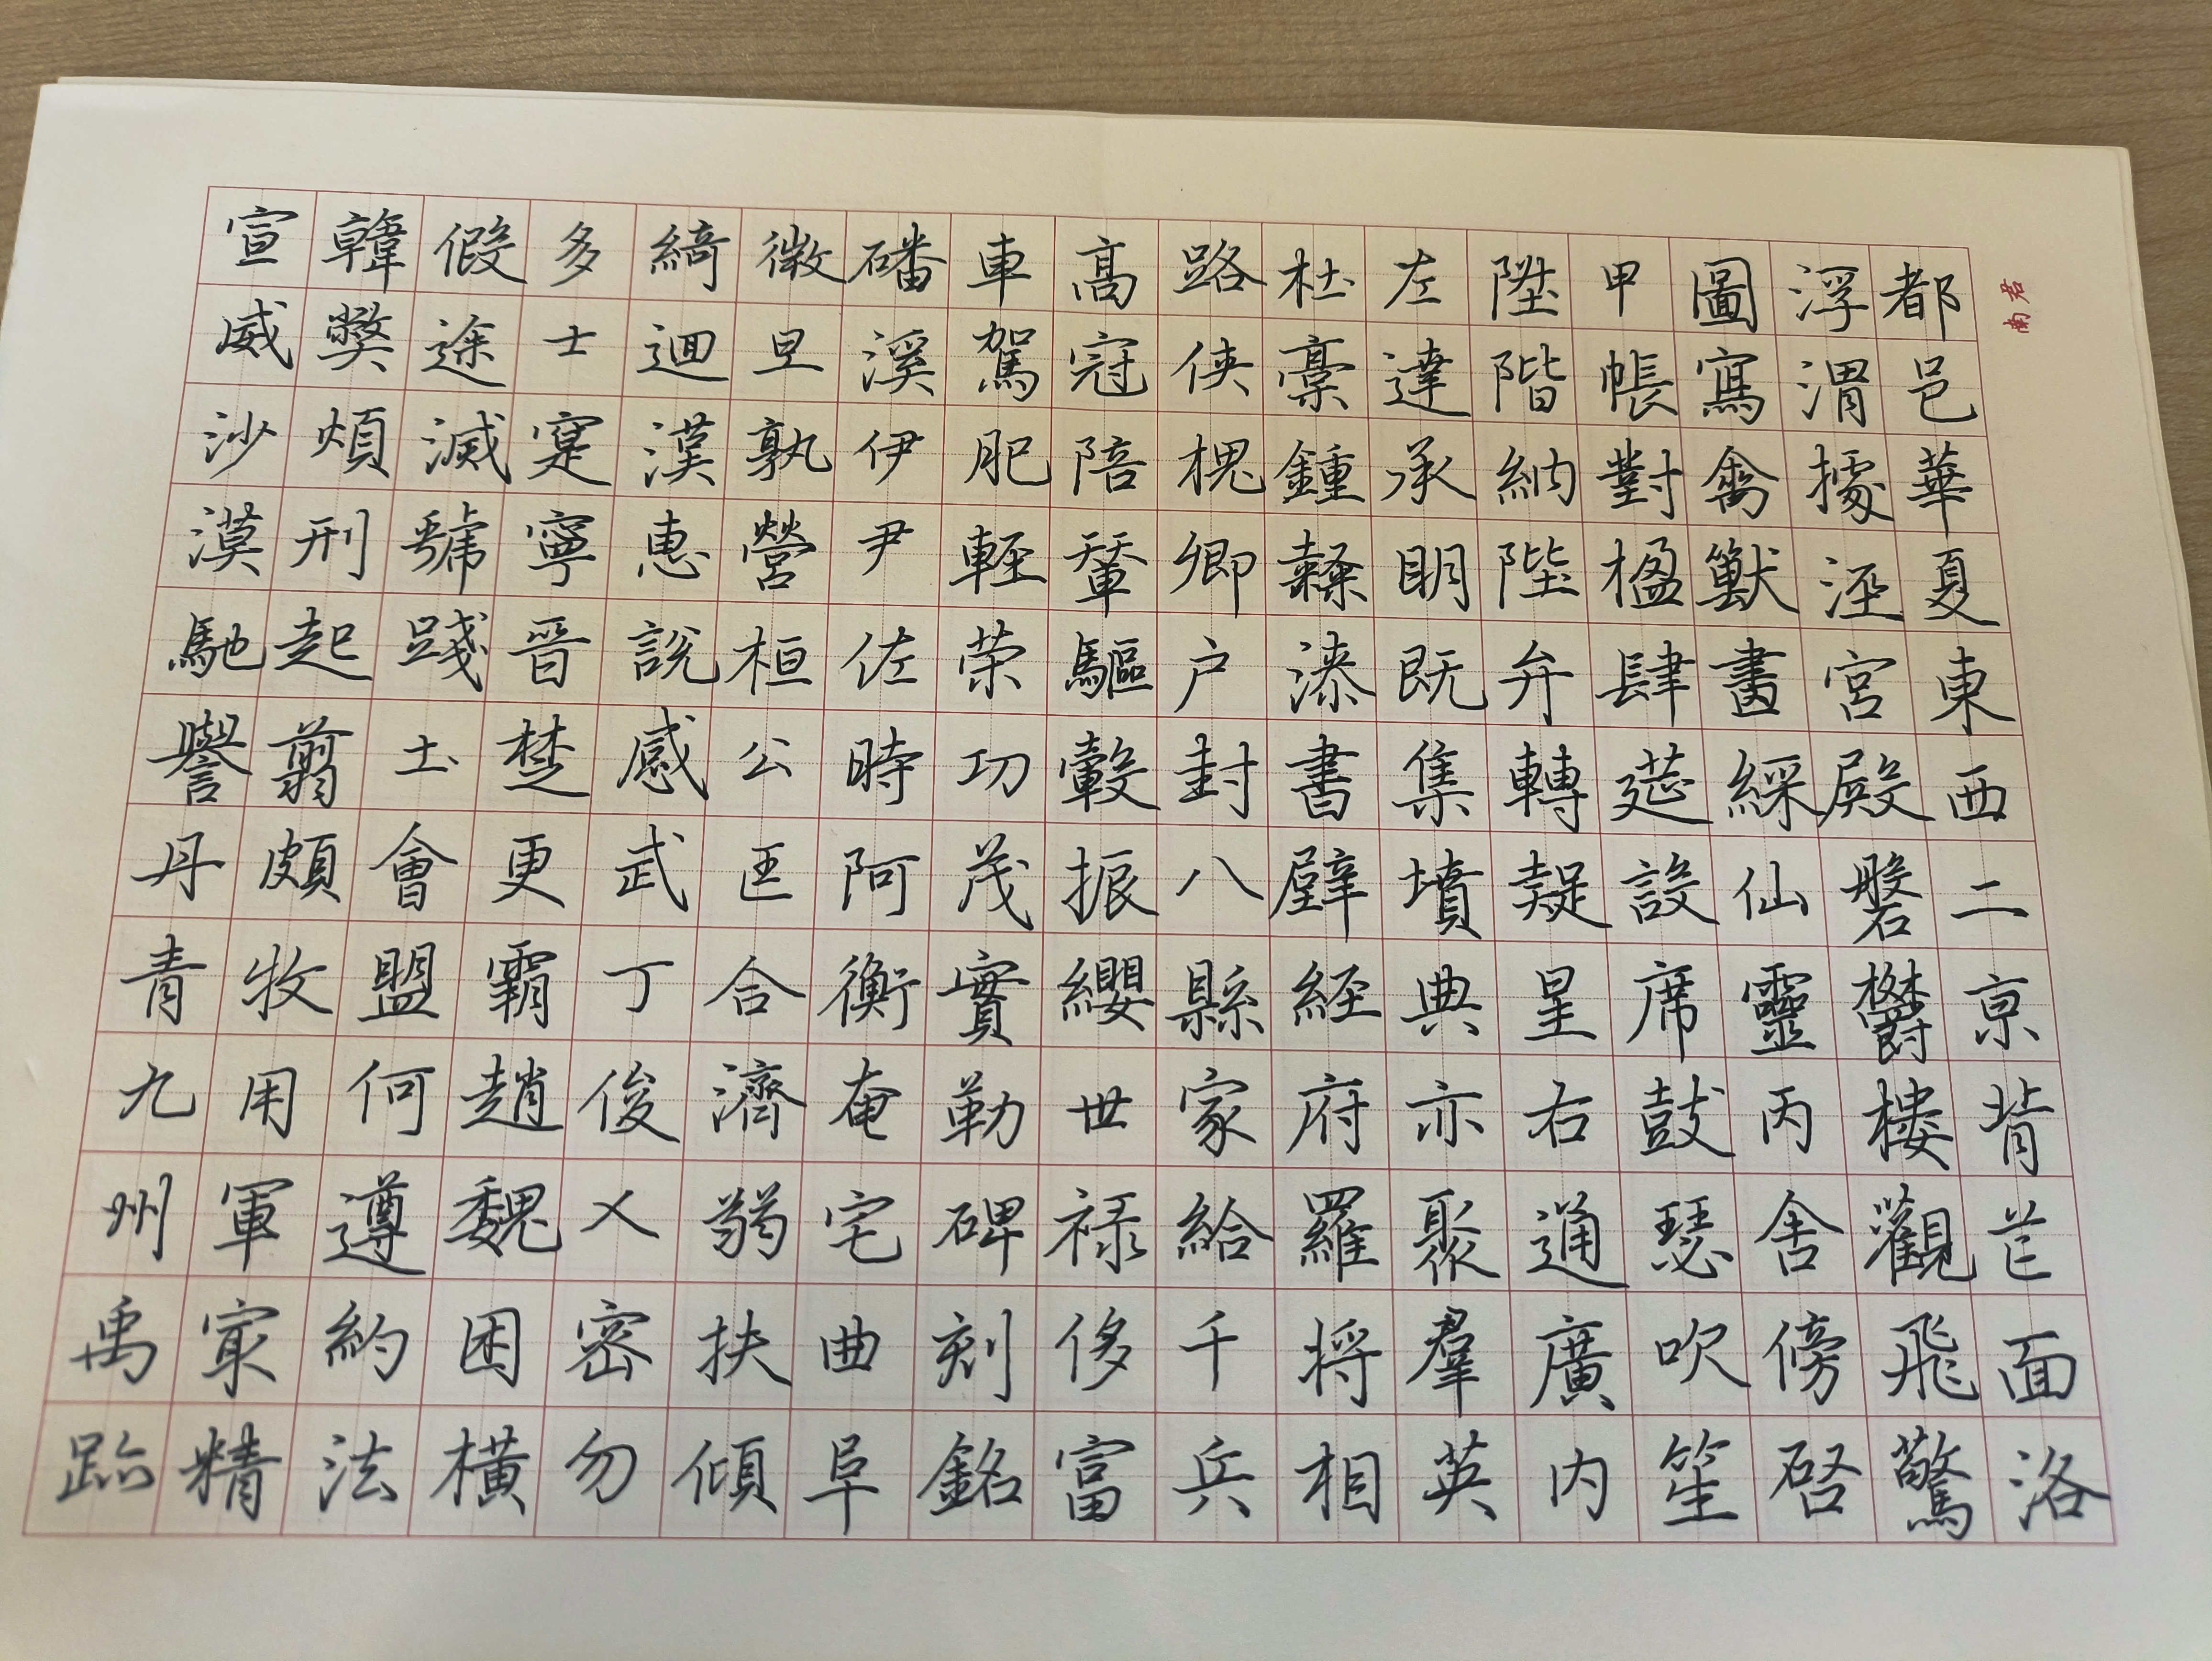 君南
都邑華夏東西二京背芒面洛
浮渭據涇宮殿磐欝樓觀飛驚
圖寫禽獸畫綵仙靈丙舍傍啓
甲帳對楹肆筵設席鼓瑟吹笙
陞階納陛弁轉疑星右通廣內
左達承明既集墳典亦聚羣英
杜稾鍾隸漆書壁經府羅將相
路俠槐卿户封八縣家給千兵
高冠陪輦驅轂振纓世禄侈富
車駕肥輕荣功茂實勒碑刻銘
磻溪伊尹佐時阿衡奄宅曲阜
微旦孰營桓公匡合濟弱扶傾
綺迴漢惠說感武丁俊乂密勿
多士寔寧晉楚更霸趙魏困橫
假途滅虢踐土會盟何遵約法
韓弊煩刑起翦頗牧用軍冣精
宣威沙漠馳譽丹青九州禹跡